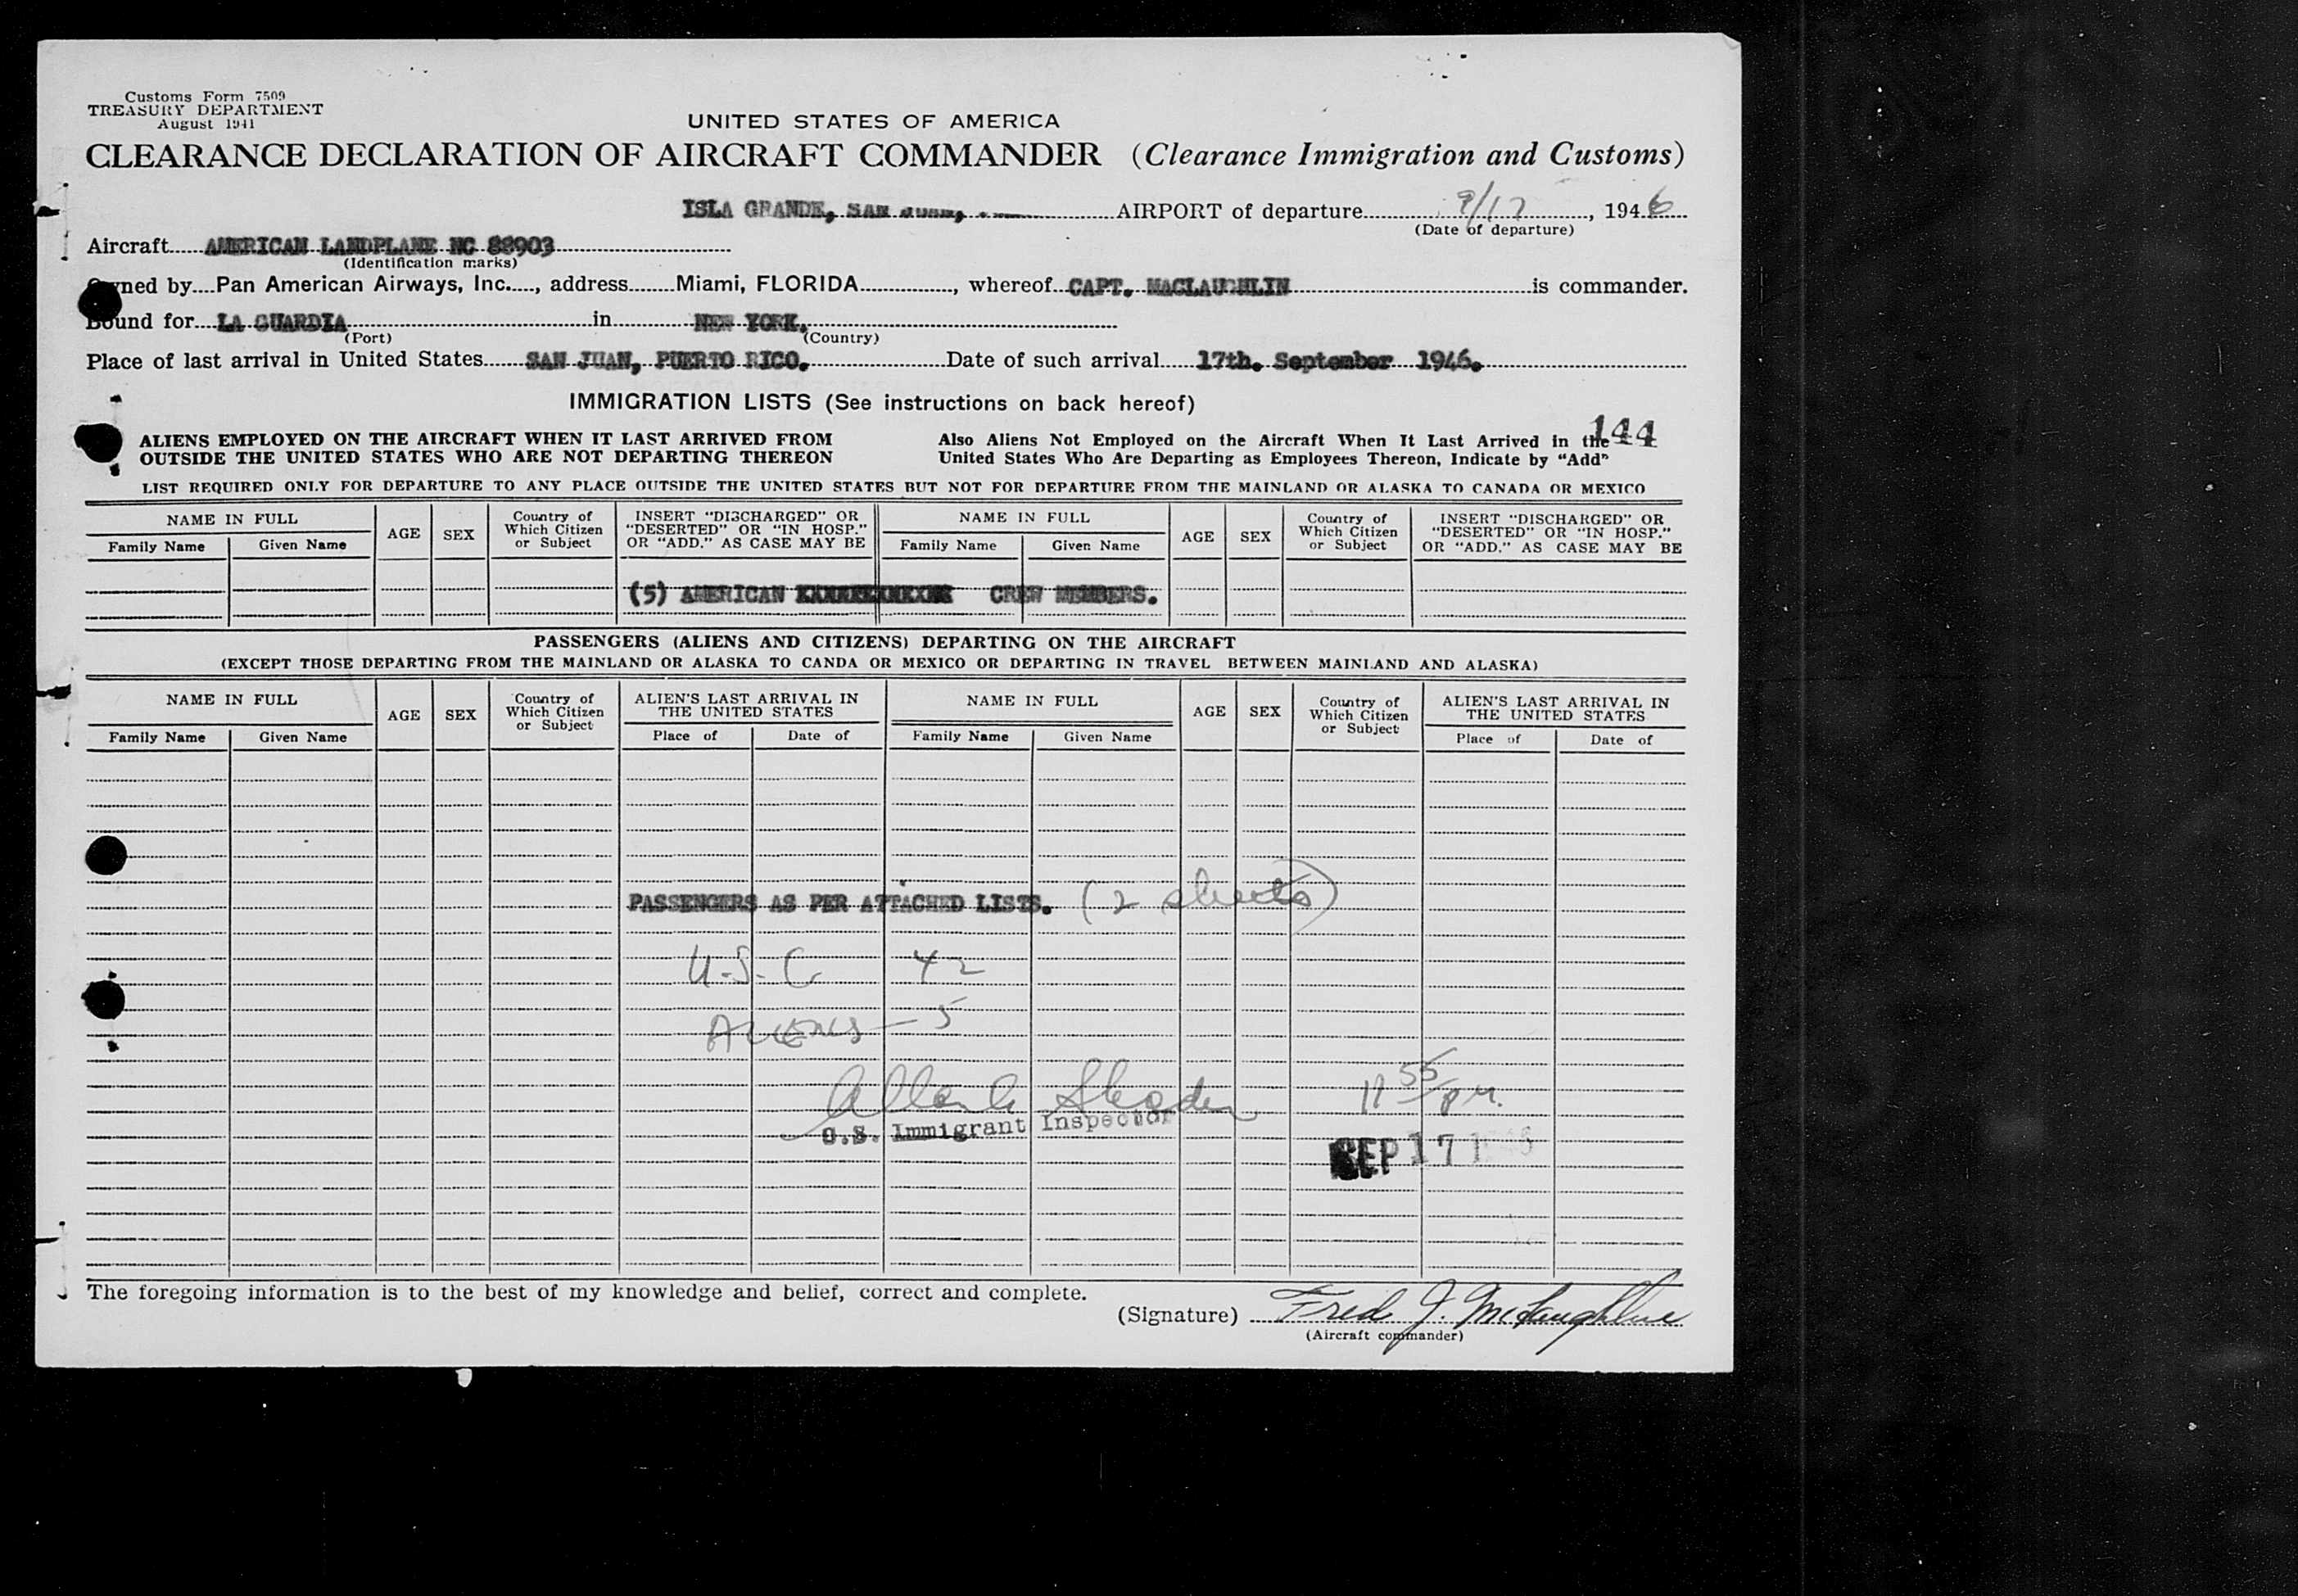 Customs Form 7509
TREASURY DEPARTMENT
August 1941
UNITED STATES OF AMERICA
CLEARANCE DECLARATION OF AIRCRAFT COMMANDER (Clearance Immigration and Customs)
ISLA GRANDE, SAN JUAN, AIRPORT of departure 9/17, 1946
(Date of departure)
Aircraft AMERICAN LANDPLANE NC 88903
(Identification marks)
Owned by Pan American Airways, Inc., address Miami, FLORIDA, whereof CAPT. MACLAUGHLIN is commander.
Bound for LA GUARDIA in NEW YORK.
(Port) (Country)
Place of last arrival in United States SAN JUAN, PUERTO RICO. Date of such arrival 17th. September 1946.
IMMIGRATION LISTS (See instructions on back hereof)
144
ALIENS EMPLOYED ON THE AIRCRAFT WHEN IT LAST ARRIVED FROM OUTSIDE THE UNITED STATES WHO ARE NOT DEPARTING THEREON
Also Aliens Not Employed on the Aircraft When It Last Arrived in the United States Who Are Departing as Employees Thereon, Indicate by "Add"
LIST REQUIRED ONLY FOR DEPARTURE TO ANY PLACE OUTSIDE THE UNITED STATES BUT NOT FOR DEPARTURE FROM THE MAINLAND OR ALASKA TO CANADA OR MEXICO
NAME IN FULL AGE SEX Country of Which Citizen or Subject INSERT "DISCHARGED" OR "DESERTED" OR "IN HOSP." OR "ADD." AS CASE MAY BE NAME IN FULL AGE SEX Country of Which Citizen or Subject INSERT "DISCHARGED" OR "DESERTED" OR "IN HOSP." OR "ADD." AS CASE MAY BE
Family Name Given Name Family Name Given Name
(5) AMERICAN CREW MEMBERS.
PASSENGERS (ALIENS AND CITIZENS) DEPARTING ON THE AIRCRAFT
(EXCEPT THOSE DEPARTING FROM THE MAINLAND OR ALASKA TO CANDA OR MEXICO OR DEPARTING IN TRAVEL BETWEEN MAINLAND AND ALASKA)
NAME IN FULL AGE SEX Country of Which Citizen or Subject ALIEN'S LAST ARRIVAL IN THE UNITED STATES NAME IN FULL AGE SEX Country of Which Citizen or Subject ALIEN'S LAST ARRIVAL IN THE UNITED STATES
Family Name Given Name Place of Date of Family Name Given Name Place of Date of
PASSENGERS AS PER ATTACHED LISTS. (2 sheets)
U.S.C 42
ALIENS — 5
U.S. Immigrant Inspector
11 55/pm.
SEP 17 1946
The foregoing information is to the best of my knowledge and belief, correct and complete.
(Signature) Fred J. McLaughlin
(Aircraft commander)